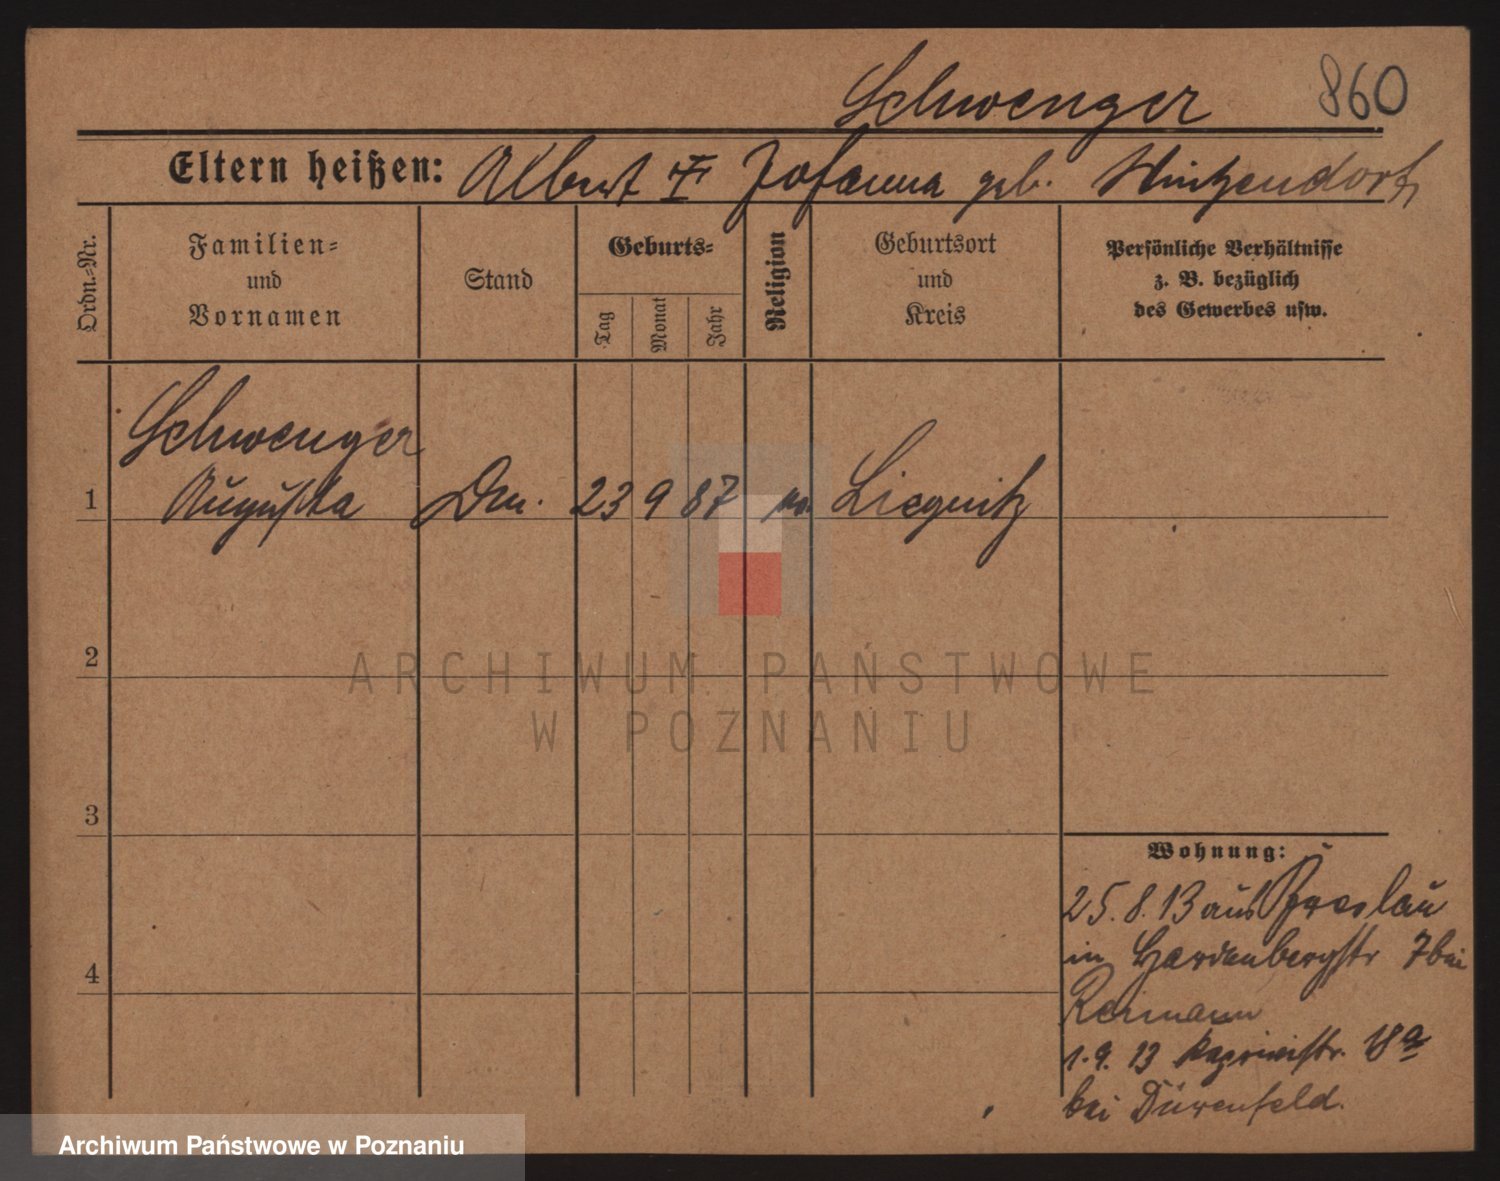 Schwenger 860
Eltern heißen: Albert † Johanna geb. Hintzendorf
Ordn.=Nr.
Familien=
und
Vornamen
Stand
Geburts=
Tag
Monat
Jahr
Religion
Geburtsort
und
Kreis
Persönliche Verhältnisse
z. B. bezüglich
des Gewerbes usw.
Schwenger
1 Augusta 23 9 87 Liegnitz
2
3
4
Wohnung:
25. 8. 13 aus Breslau
in Hardenbergstr 7 bei
Reimann
1. 9. 13 Kaprivistr. 18a
bei Dürenfeld.
ARCHIWUM PAŃSTWOWE
W POZNANIU
Archiwum Państwowe w Poznaniu